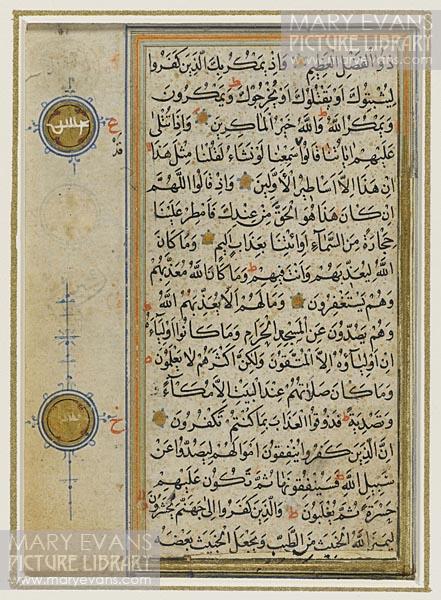 MARY EVANS
PICTURE LIBRARY
www.maryevans.com
ذو الفضل العظيم واذ يمكر بك الذين كفروا
ليثبتوك او يقتلوك او يخرجوك ويمكرون
ويمكر الله والله خير الماكرين واذا تتلى
عليهم اياتنا قالوا سمعنا لو نشاء لقلنا مثل هذا
قد
ان هذا الا اساطير الاولين واذ قالوا اللهم
ان كان هذا هو الحق من عندك فامطر علينا
حجارة من السماء او ائتنا بعذاب اليم وما كان
الله ليعذبهم وانت فيهم وما كان الله معذبهم
وهم يستغفرون وما لهم الا يعذبهم الله
وهم يصدون عن المسجد الحرام وما كانوا اولياءه
ان اولياؤه الا المتقون ولكن اكثرهم لا يعلمون
وما كان صلاتهم عند البيت الا مكاء
وتصدية فذوقوا العذاب بما كنتم تكفرون
ان الذين كفروا ينفقون اموالهم ليصدوا عن
سبيل الله فسينفقونها ثم تكون عليهم
حسرة ثم يغلبون والذين كفروا الى جهنم يحشرون
ليميز الله الخبيث من الطيب ويجعل الخبيث بعضه
MARY EVANS
PICTURE LIBRARY
www.maryevans.com